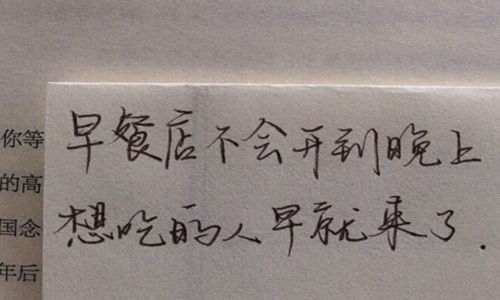 早餐店不会开到晚上
想吃的人早就来了.
你等
的高
国念
年后